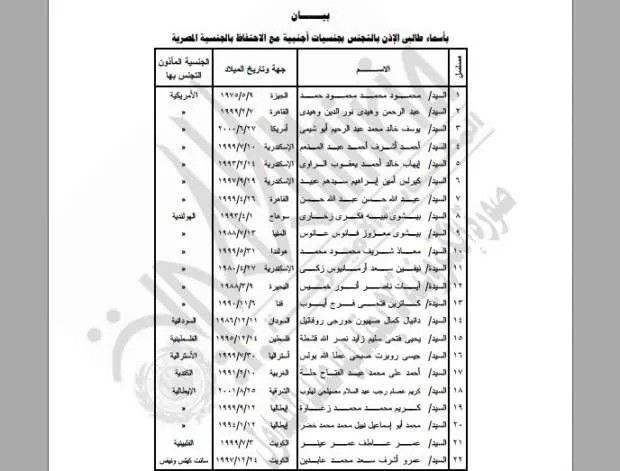 بيـــــان
بأسماء طالبى الإذن بالتجنس بجنسيات أجنبية مع الاحتفاظ بالجنسية المصرية
مسلسل الاســـــم جهة وتاريخ الميلاد الجنسية المأذون التجنس بها
١ السيد/ محمـود محمـد محمـود حمـد الجيزة ١٩٧٥/٥/٩ الأمريكية
٢ السيد/ عبد الرحمن وهيدى نور الدين وهيدى القاهرة ١٩٩٩/٢/٧ »
٣ السيد/ يوسف خالد محمد عبد الرحيم أبو شيمى أمريكا ٢٠٠٠/٦/٢٧ »
٤ السيد/ أحمـد أشـرف أحمـد عبـد المـنعم الإسكندرية ١٩٩٩/٧/١٠ »
٥ السيد/ إيهاب خالد أحمـد يعقوب الـراوى الإسكندرية ١٩٩٣/٢/١٤ »
٦ السيد/ كيرلس أمين إبراهيم سيدهم عبيد الإسكندرية ١٩٩٧/٩/٢٩ »
٧ السيد/ عبـد اللـه حسـن عبـد اللـه حسـن القاهرة ١٩٩٩/٤/٢٦ »
٨ السيد/ بيشـوى نبيـه فكـرى زخـارى سوهاج ١٩٩٣/٤/١ الهولندية
٩ السيد/ بيشوى معزوز فانوس عانوس المنيا ١٩٨٨/٧/١٣ »
١٠ السيد/ معـاذ شـريف محمـود محمـد هولندا ١٩٩٩/٥/٣١ »
١١ السيدة/ نيفـين سـعد أرمـانيوس زكـى الإسكندرية ١٩٨٠/٤/٢٧ »
١٢ السيدة/ آيـات ناصـر أنـور خمـيس البحيرة ١٩٨٨/٣/٩ »
١٣ السيدة/ كـاترين فتحـى فـرج أيـوب قنا ١٩٩٠/١١/٦ »
١٤ السيد/ دانيال كمال صهيون جورجى روفائيل السودان ١٩٨٦/١٢/١١ السودانية
١٥ السيد/ يحيى فتحى سليم زايد نصر الله قشطة فلسطين ١٩٩٥/١٢/١٤ الفلسطينية
١٦ السيد/ جيسى روبرت صبحى عطا الله بولس أستراليا ١٩٩٩/٧/٣٠ الأسترالية
١٧ السيد/ أحمد على محمد عبـد الفتـاح حلـة الغربية ١٩٩١/٢/١٠ الكندية
١٨ السيد/ كريم عصام رجب عبد السلام مصيلحى الشرقية ٢٠٠١/٨/٢٥ الإيطالية
١٩ السيد/ كـريم محمـد محمـد زغـاوة إيطاليا ١٩٩٩/٩/١٢ »
٢٠ السيد/ محمد أبو إسماعيل نبيل محمد محمد خضر إيطاليا ١٩٩٤/١/١٢ »
٢١ السيد/ عمـر عـاطف عمـر عينـر الكويت ١٩٩٩/٧/٣ الفلبينية
٢٢ السيد/ عمرو أشرف سعد محمـد عابـدين الكويت ١٩٩٧/١٢/٢٤ سانت كيتس ونيفس